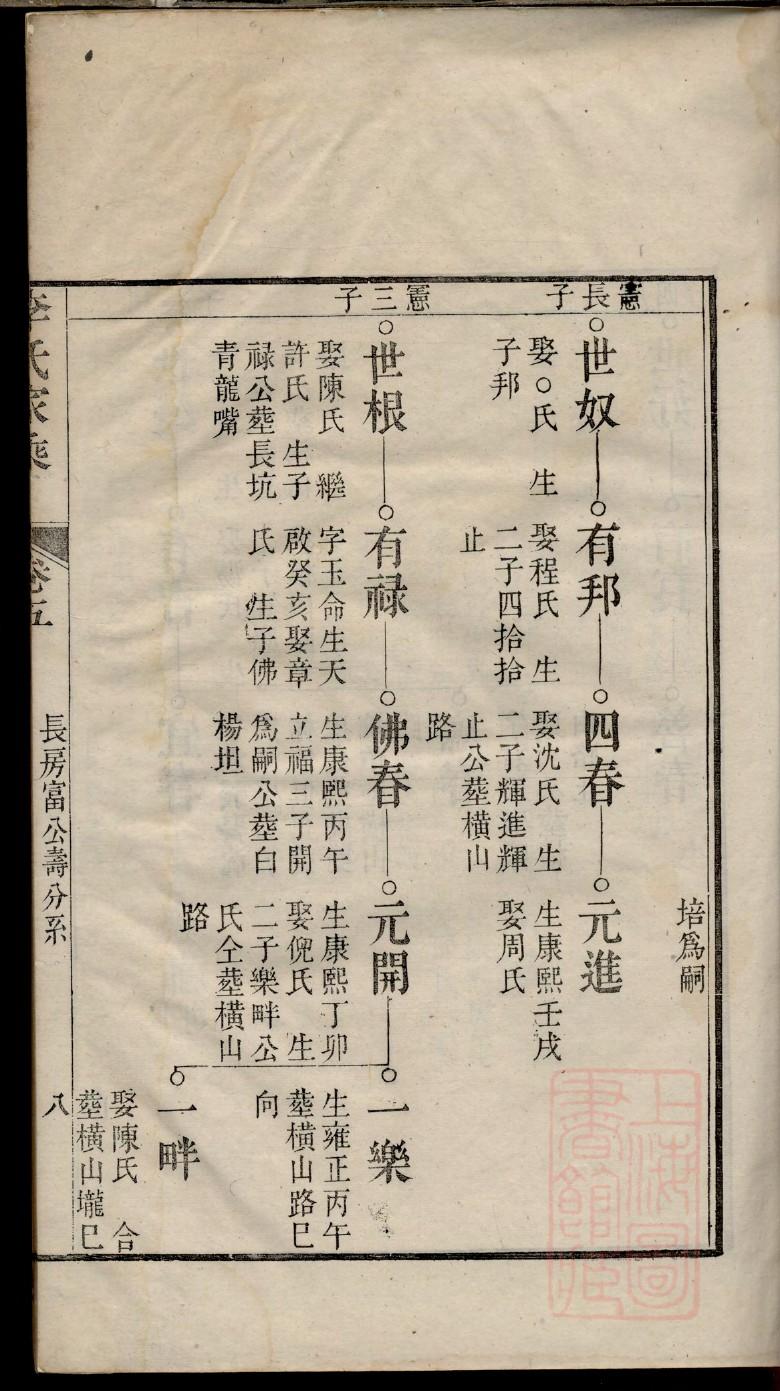 培爲嗣
憲長子
世奴
娶○氏 生
子邦
有邦
娶程氏 生
二子四拾拾
止
四春
娶沈氏 生
二子輝進輝
止公塟橫山
路
元進
生康熙壬戌
娶周氏
憲三子
世根
娶陳氏 繼
許氏 生子
禄公塟長坑
青龍嘴
有禄
字玉命生天
啟癸亥娶章
氏 生子佛
佛春
生康熙丙午
立福三子開
爲嗣公塟白
楊坦
元開
生康熙丁卯
娶倪氏 生
二子樂畔公
氏仝塟橫山
路
一樂
生雍正丙午
塟橫山路巳
向
一畔
娶陳氏 合
塟橫山壠巳
李氏家乘
卷五
長房富公壽分系
八
上海圖
書館藏